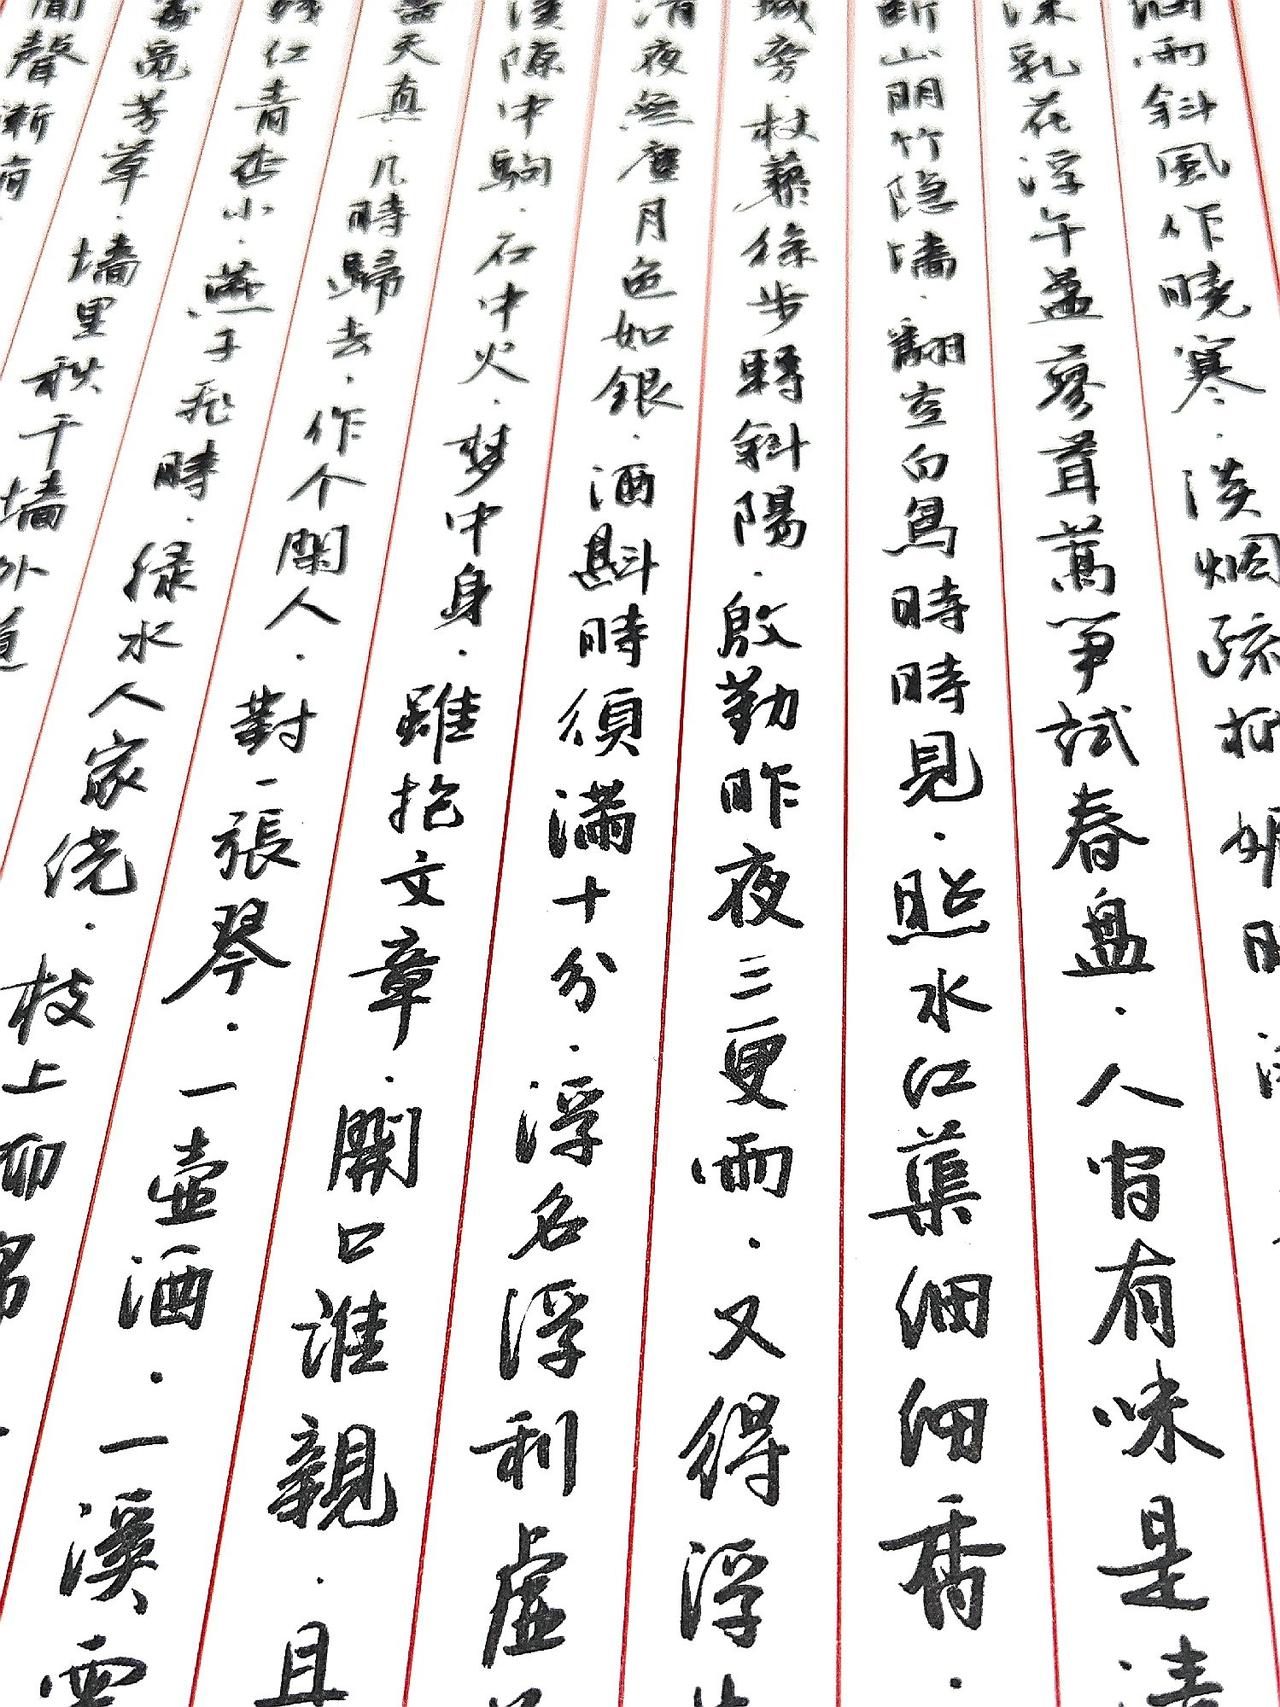 細雨斜風作曉寒．淡烟疏柳媚
沫乳花浮午盞蓼茸蒿筍試春盤．人間有味是清
断山明竹隐墻．翻空白鳥時時見．照水江蕖細細香．
城旁．杖藜徐步轉斜陽．殷勤昨夜三更雨．又得浮
清夜無塵月色如銀．酒斟時須滿十分．浮名浮利虚
隙中駒．石中火．梦中身．雖抱文章．開口誰親．且
天真．几時歸去．作个閑人．對一張琴．一壺酒．一溪雲
残红青杏小．燕子飛時．緑水人家绕．枝上
芳草．墙里秋千墙外道
聲漸